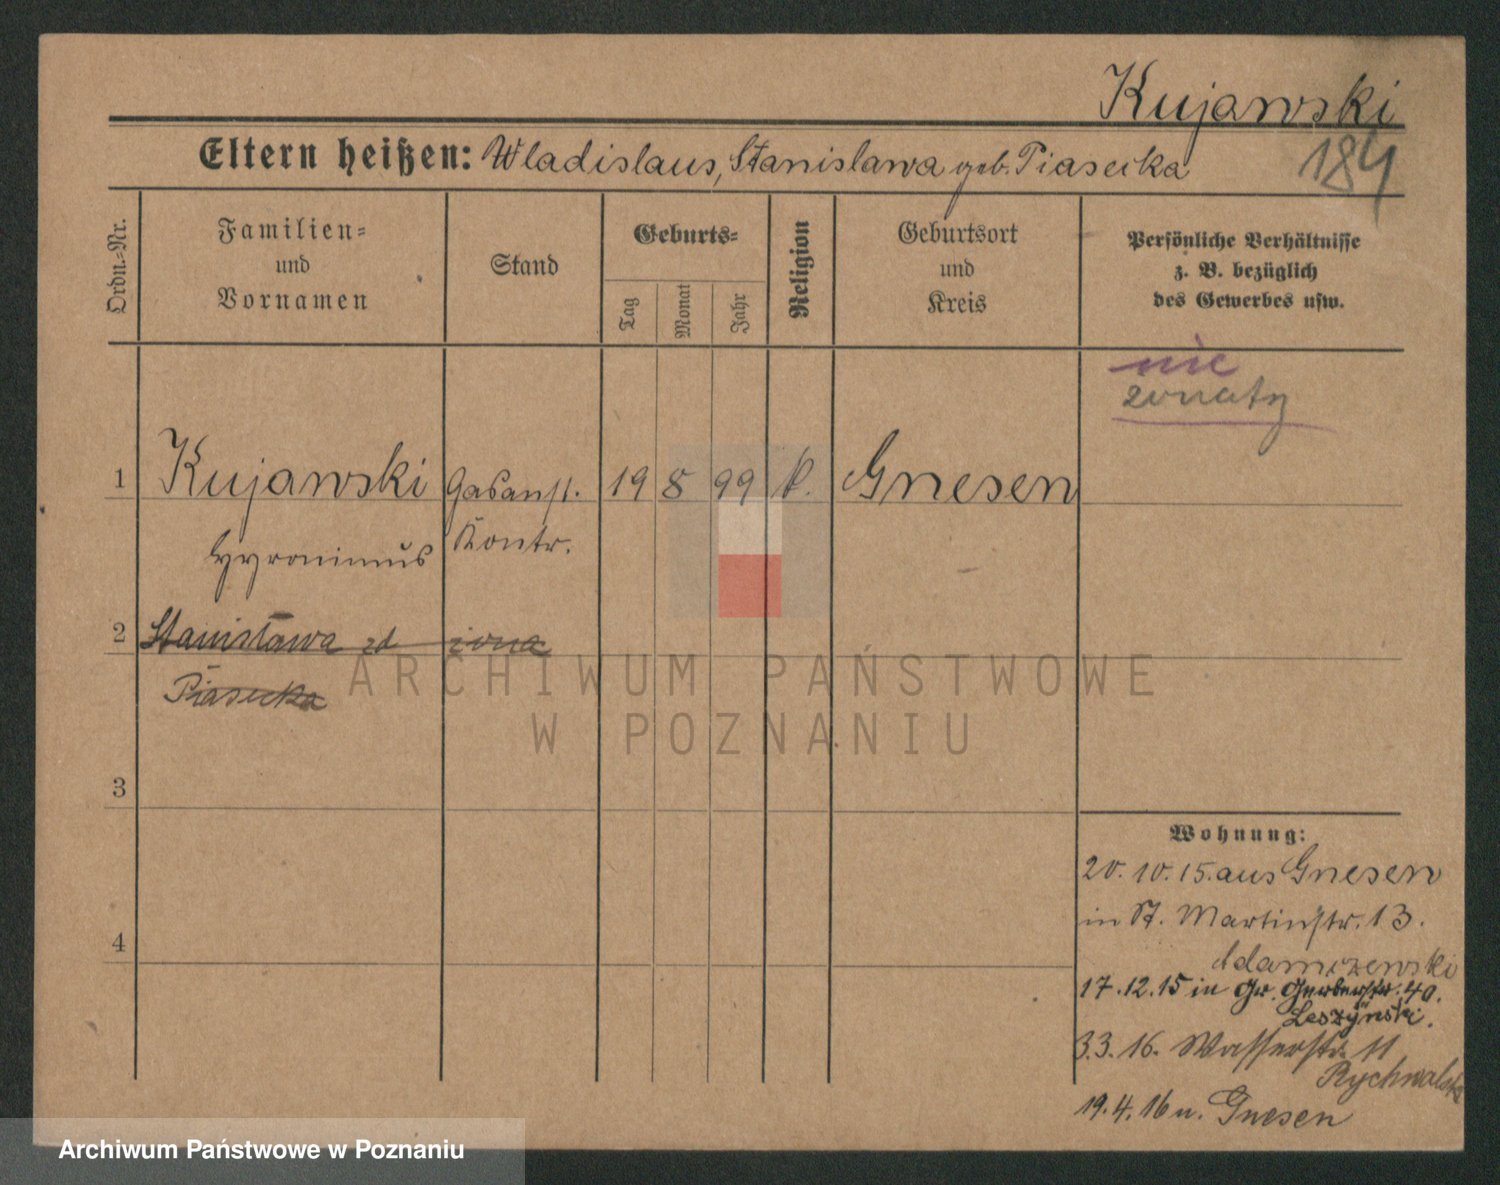 Kujawski
Eltern heißen: Wladislaus, Stanislawa geb. Piasecka
184
Ordn.-Nr.
Familien-
und
Vornamen
Stand
Geburts-
Tag
Monat
Jahr
Religion
Geburtsort
und
Kreis
Persönliche Verhältnisse
z. B. bezüglich
des Gewerbes usw.
nie
żonaty
1 Kujawski Gasanst. 19 8 99 k. Gnesen
Hyronimus Kontr.
2 Stanisława zd żona
Piasecka
ARCHIWUM PAŃSTWOWE
W POZNANIU
3
4
Wohnung:
20. 10. 15. aus Gnesen
in St. Martinstr. 13.
Adamczewski
17.12.15 in Gr. Gerberstr. 40.
Leszÿnski.
3.3.16. Wasserstr. 11
Rychwalski
19.4.16 n. Gnesen
Archiwum Państwowe w Poznaniu